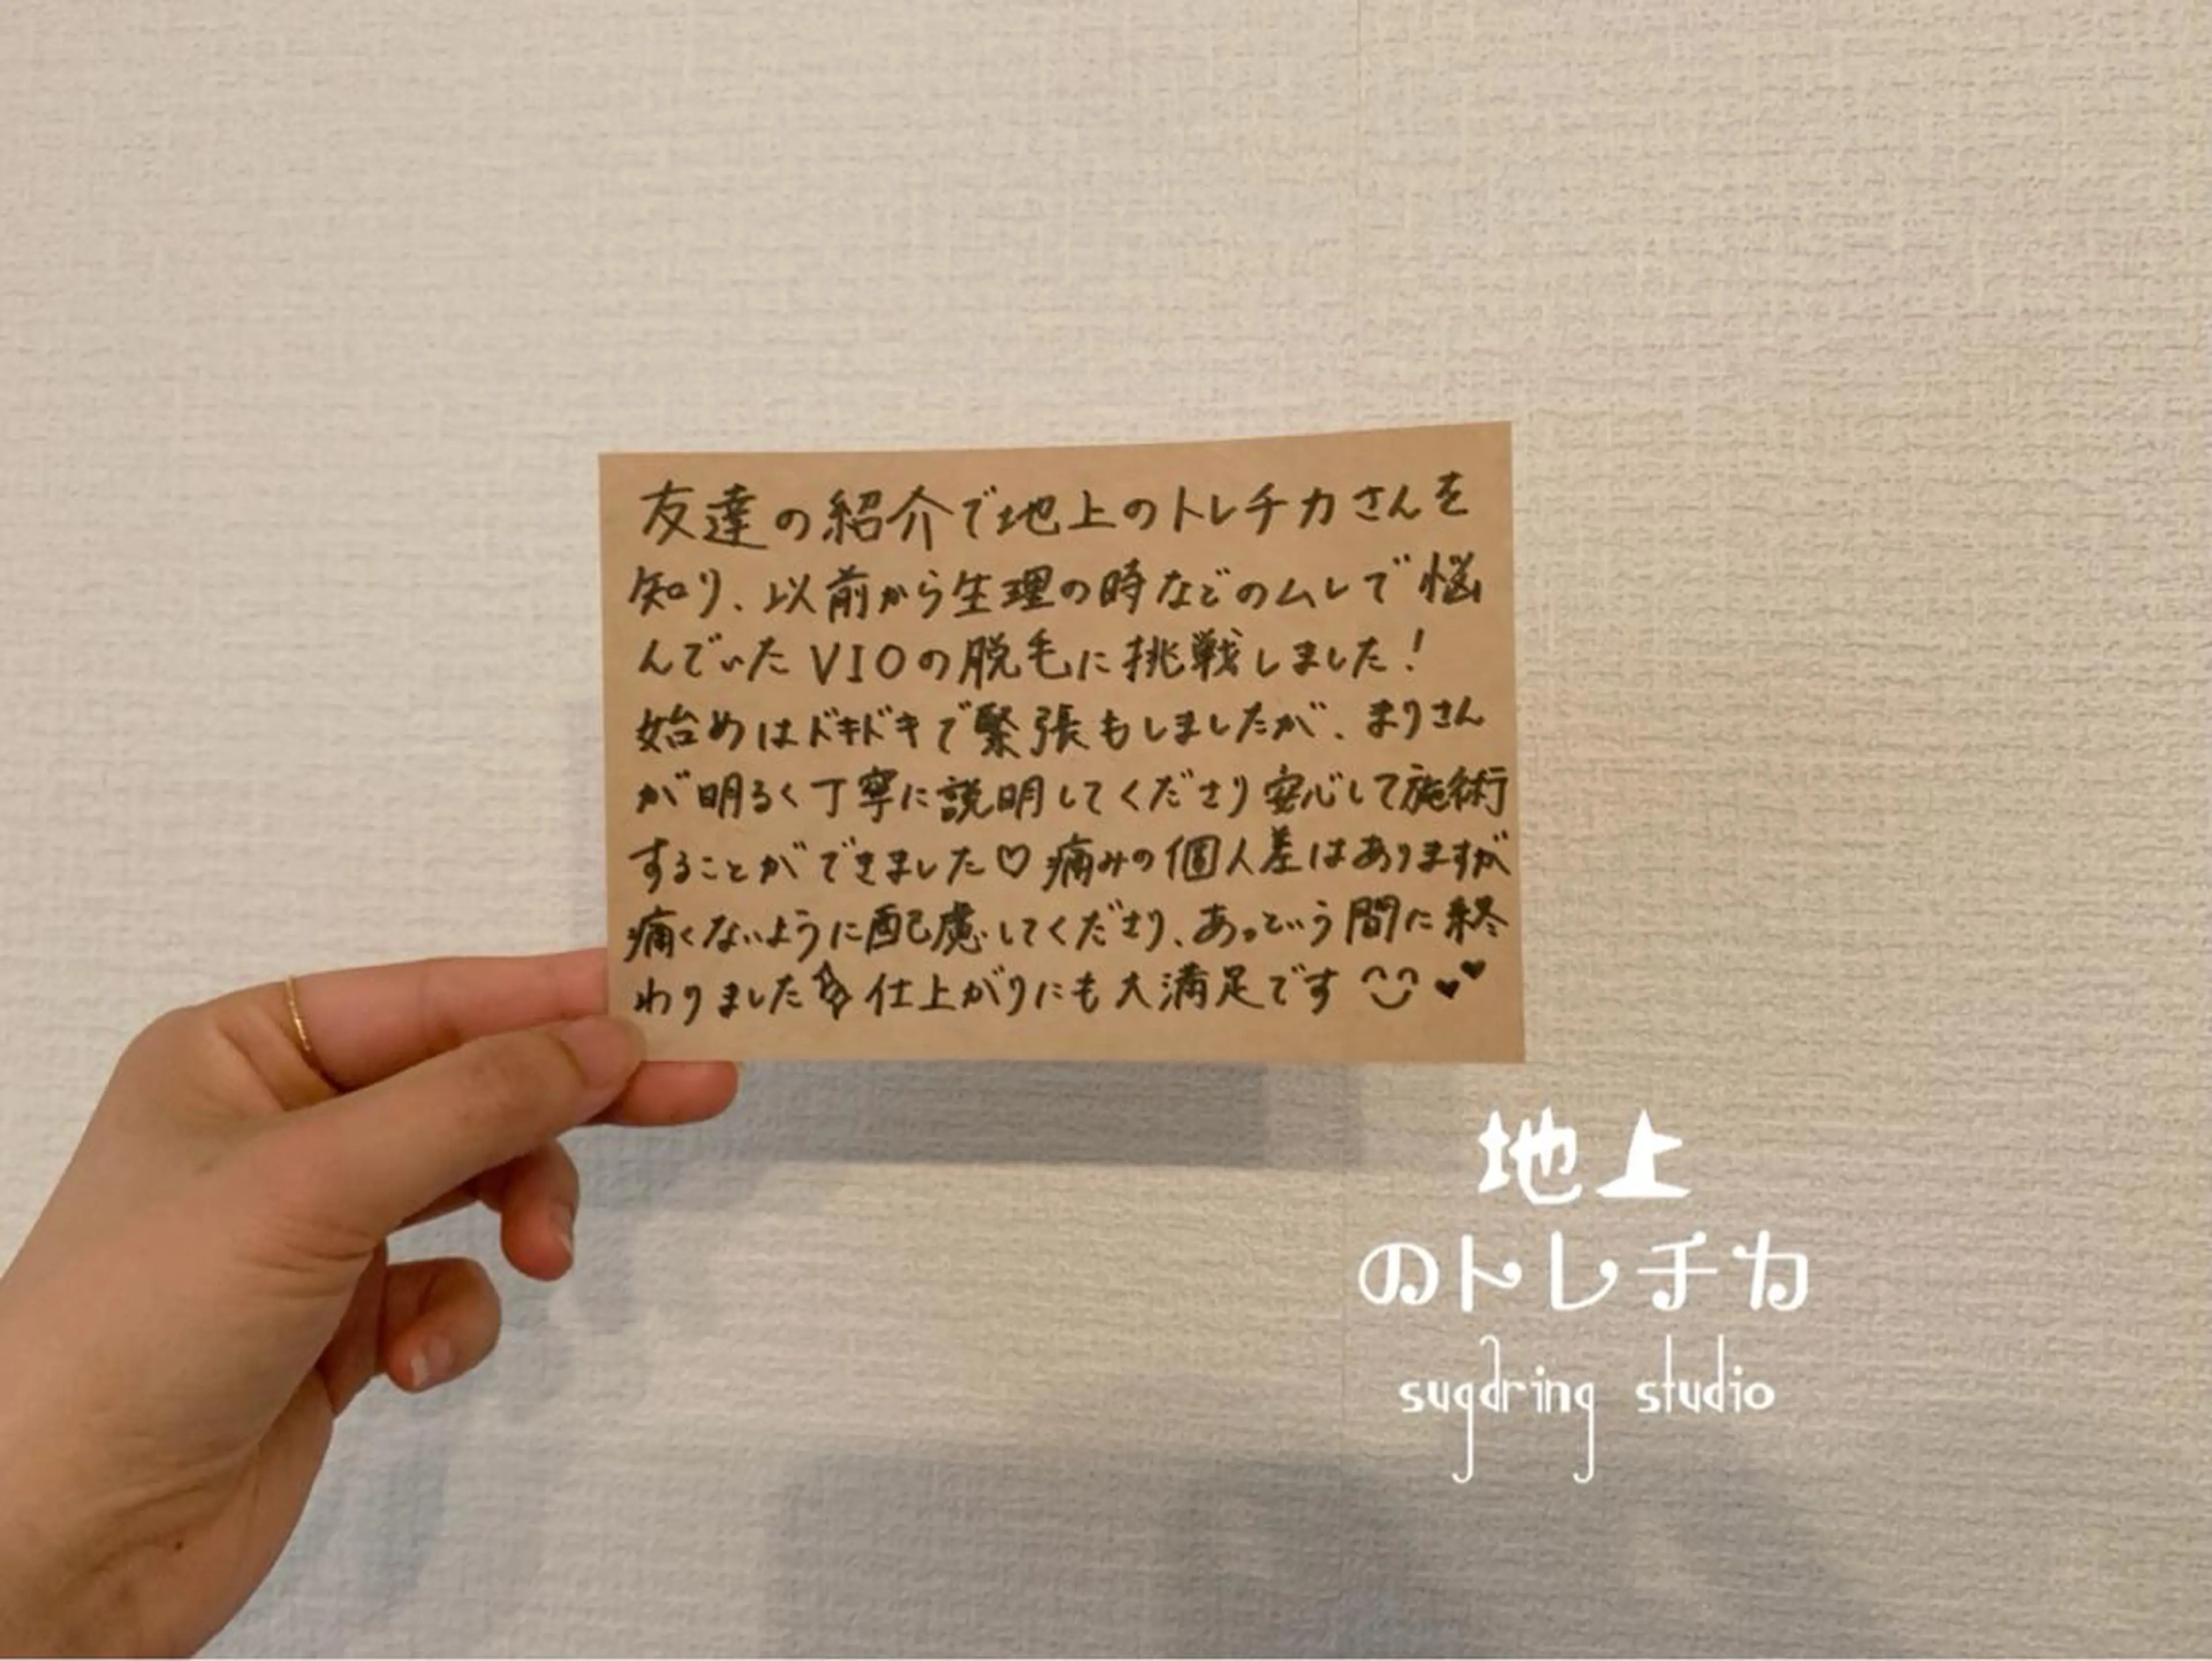 友達の紹介で地上のトレチカさんを
知り、以前から生理の時などのムレで悩
んでいたVIOの脱毛に挑戦しました!
始めはドキドキで緊張もしましたが、まりさん
が明るく丁寧に説明してくださり安心して施術
することができました♡痛みの個人差はありますが
痛くないように配慮してくださり、あっという間に終
わりました☆仕上がりにも大満足です
地上
のトレチカ
sugaring studio